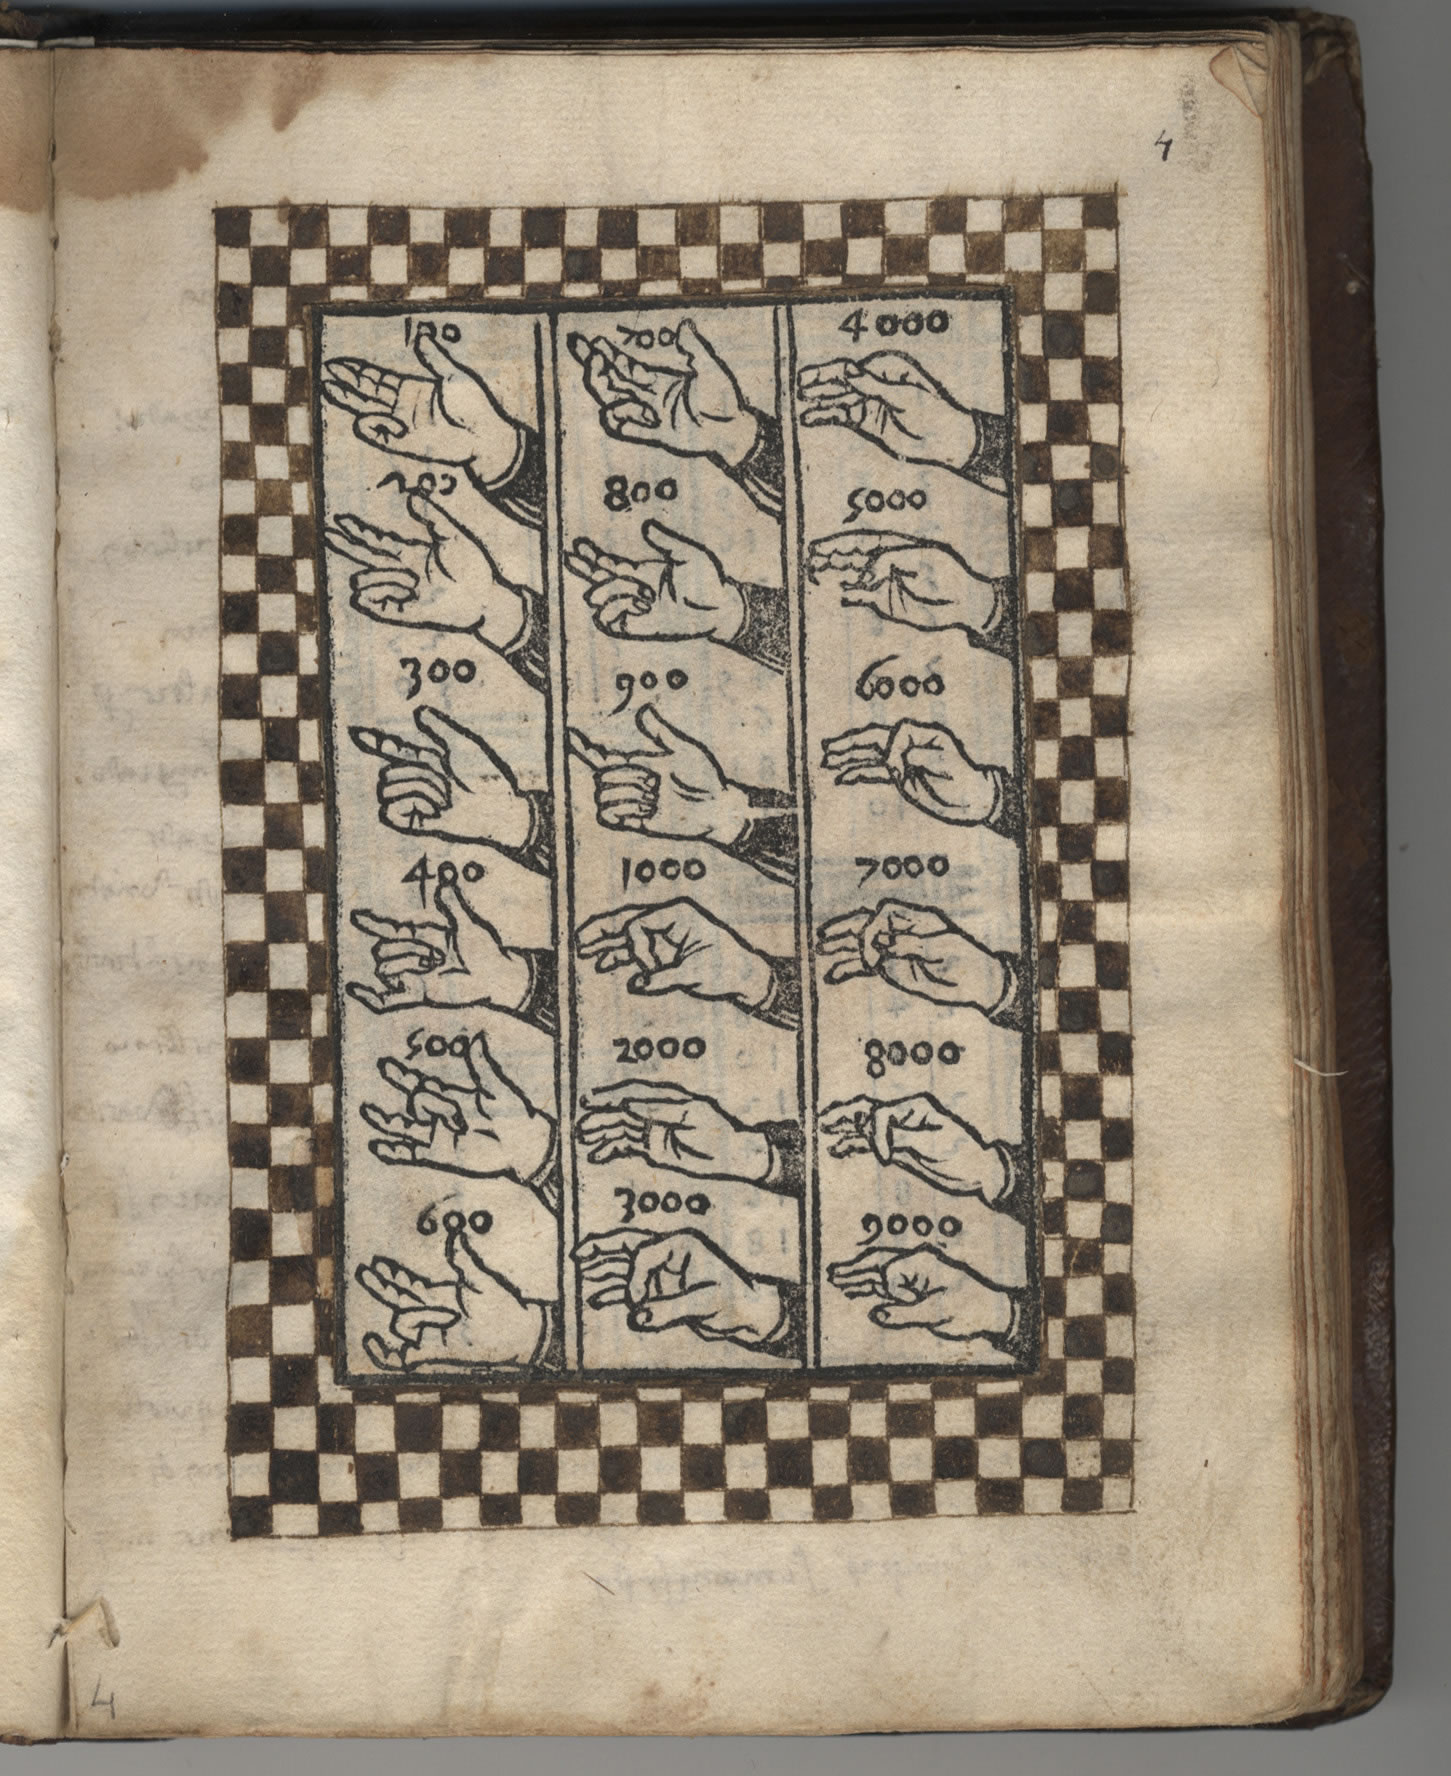 4
100
200
300
400
500
600
700
800
900
1000
2000
3000
4000
5000
6000
7000
8000
9000
4